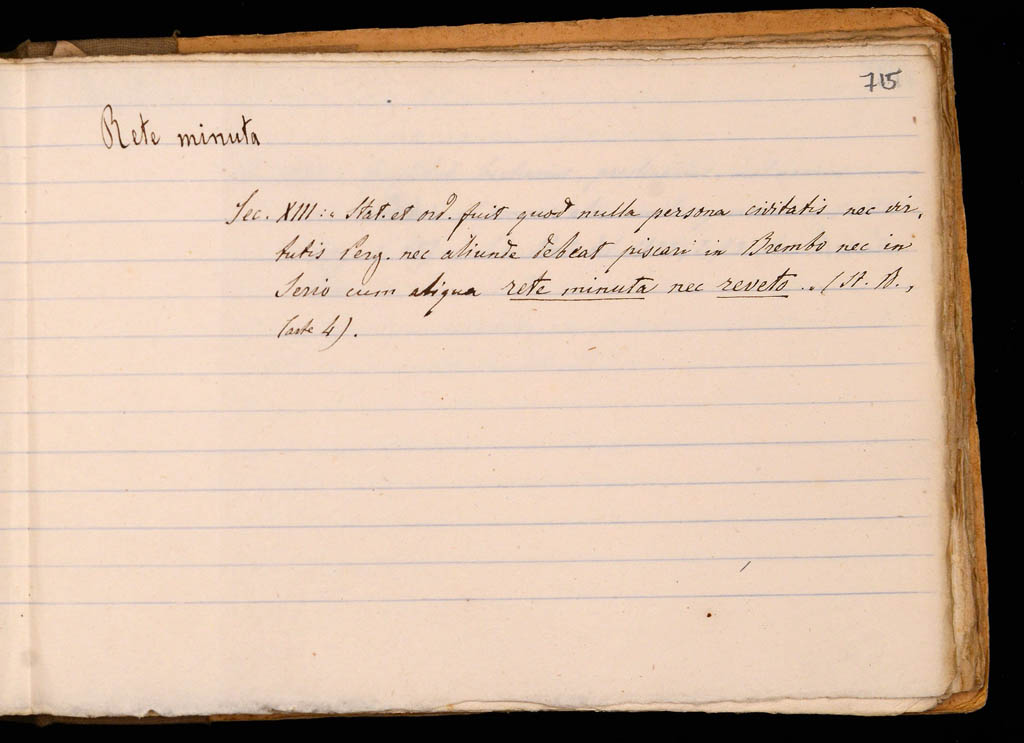 715
Rete minuta
Sec. XIII: „ Stat. et ord. fuit quod nulla persona civitatis nec vir,
tutis Perg. nec aliunde debeat piscari in Brembo nec in
Serio cum aliqua rete minuta nec reveto „ (St. B.,
Parte 4).